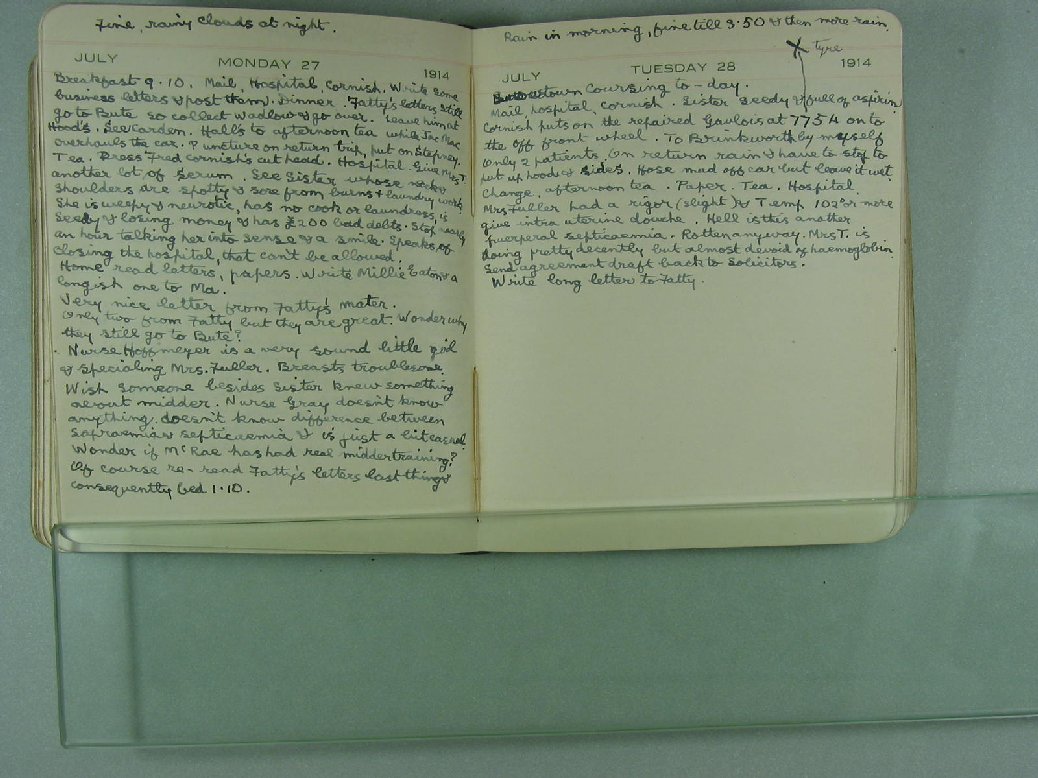 Fine, rainy clouds at night.
JULY MONDAY 27 1914
Breakfast 9.10. Mail, Hospital, Cornish. Write some
business letters & post them. Dinner. Fatty's letters still
go to Bute so collect Wadlow & go over. Leave him at
Hood's. See Carden. Hall's to afternoon tea while Jac Mac
overhauls the car. Puncture on return trip, put on Stepney.
Tea. Dress Fred Cornish's cut head. Hospital. Give Mrs T.
another lot of serum. See Sister whose
shoulders are spotty & sore from burns & laundry work.
She is weepy & neurotic, has no cook or laundress, is
seedy & losing money & has £200 bad debts. Stop nearly
an hour talking her into sense & a smile. Speaks of
closing the hospital, that can't be allowed.
Home read letters, papers. Write Millie Eaton & a
longish one to Ma.
Very nice letter from Fatty's mater.
Only two from Fatty but they are great. Wonder why
they still go to Bute?
Nurse Hoffmeyer is a very sound little girl
& specialing Mrs. Fuller. Breasts troublesome.
Wish someone besides Sister knew something
about midder. Nurse Gray doesn't know
anything, doesn't know difference between
sapraemia & septicaemia & is just a bit casual.
Wonder if McRae has had real midder training?
Of course re-read Fatty's letters last thing &
consequently bed 1.10.
Rain in morning, fine till 3.50 & then more rain.
X tyre
JULY TUESDAY 28 1914
Coursing to-day.
Mail, hospital, Cornish. Sister seedy & full of aspirin
Cornish puts on the repaired Gaulois at 7754 on to
the off front wheel. To Brinkworth by myself
only 2 patients. On return rain & have to stop to
put up hood & sides. Hose mud off car but leave it wet.
Change, afternoon tea. Paper. Tea. Hospital.
Mrs Fuller had a rigor (slight) & Temp 102° or more
give intra uterine douche. Hell is this another
puerperal septicaemia. Rotten anyway. Mrs T. is
doing pretty decently but almost devoid of haemoglobin
Send agreement draft back to solicitors.
Write long letter to Fatty.